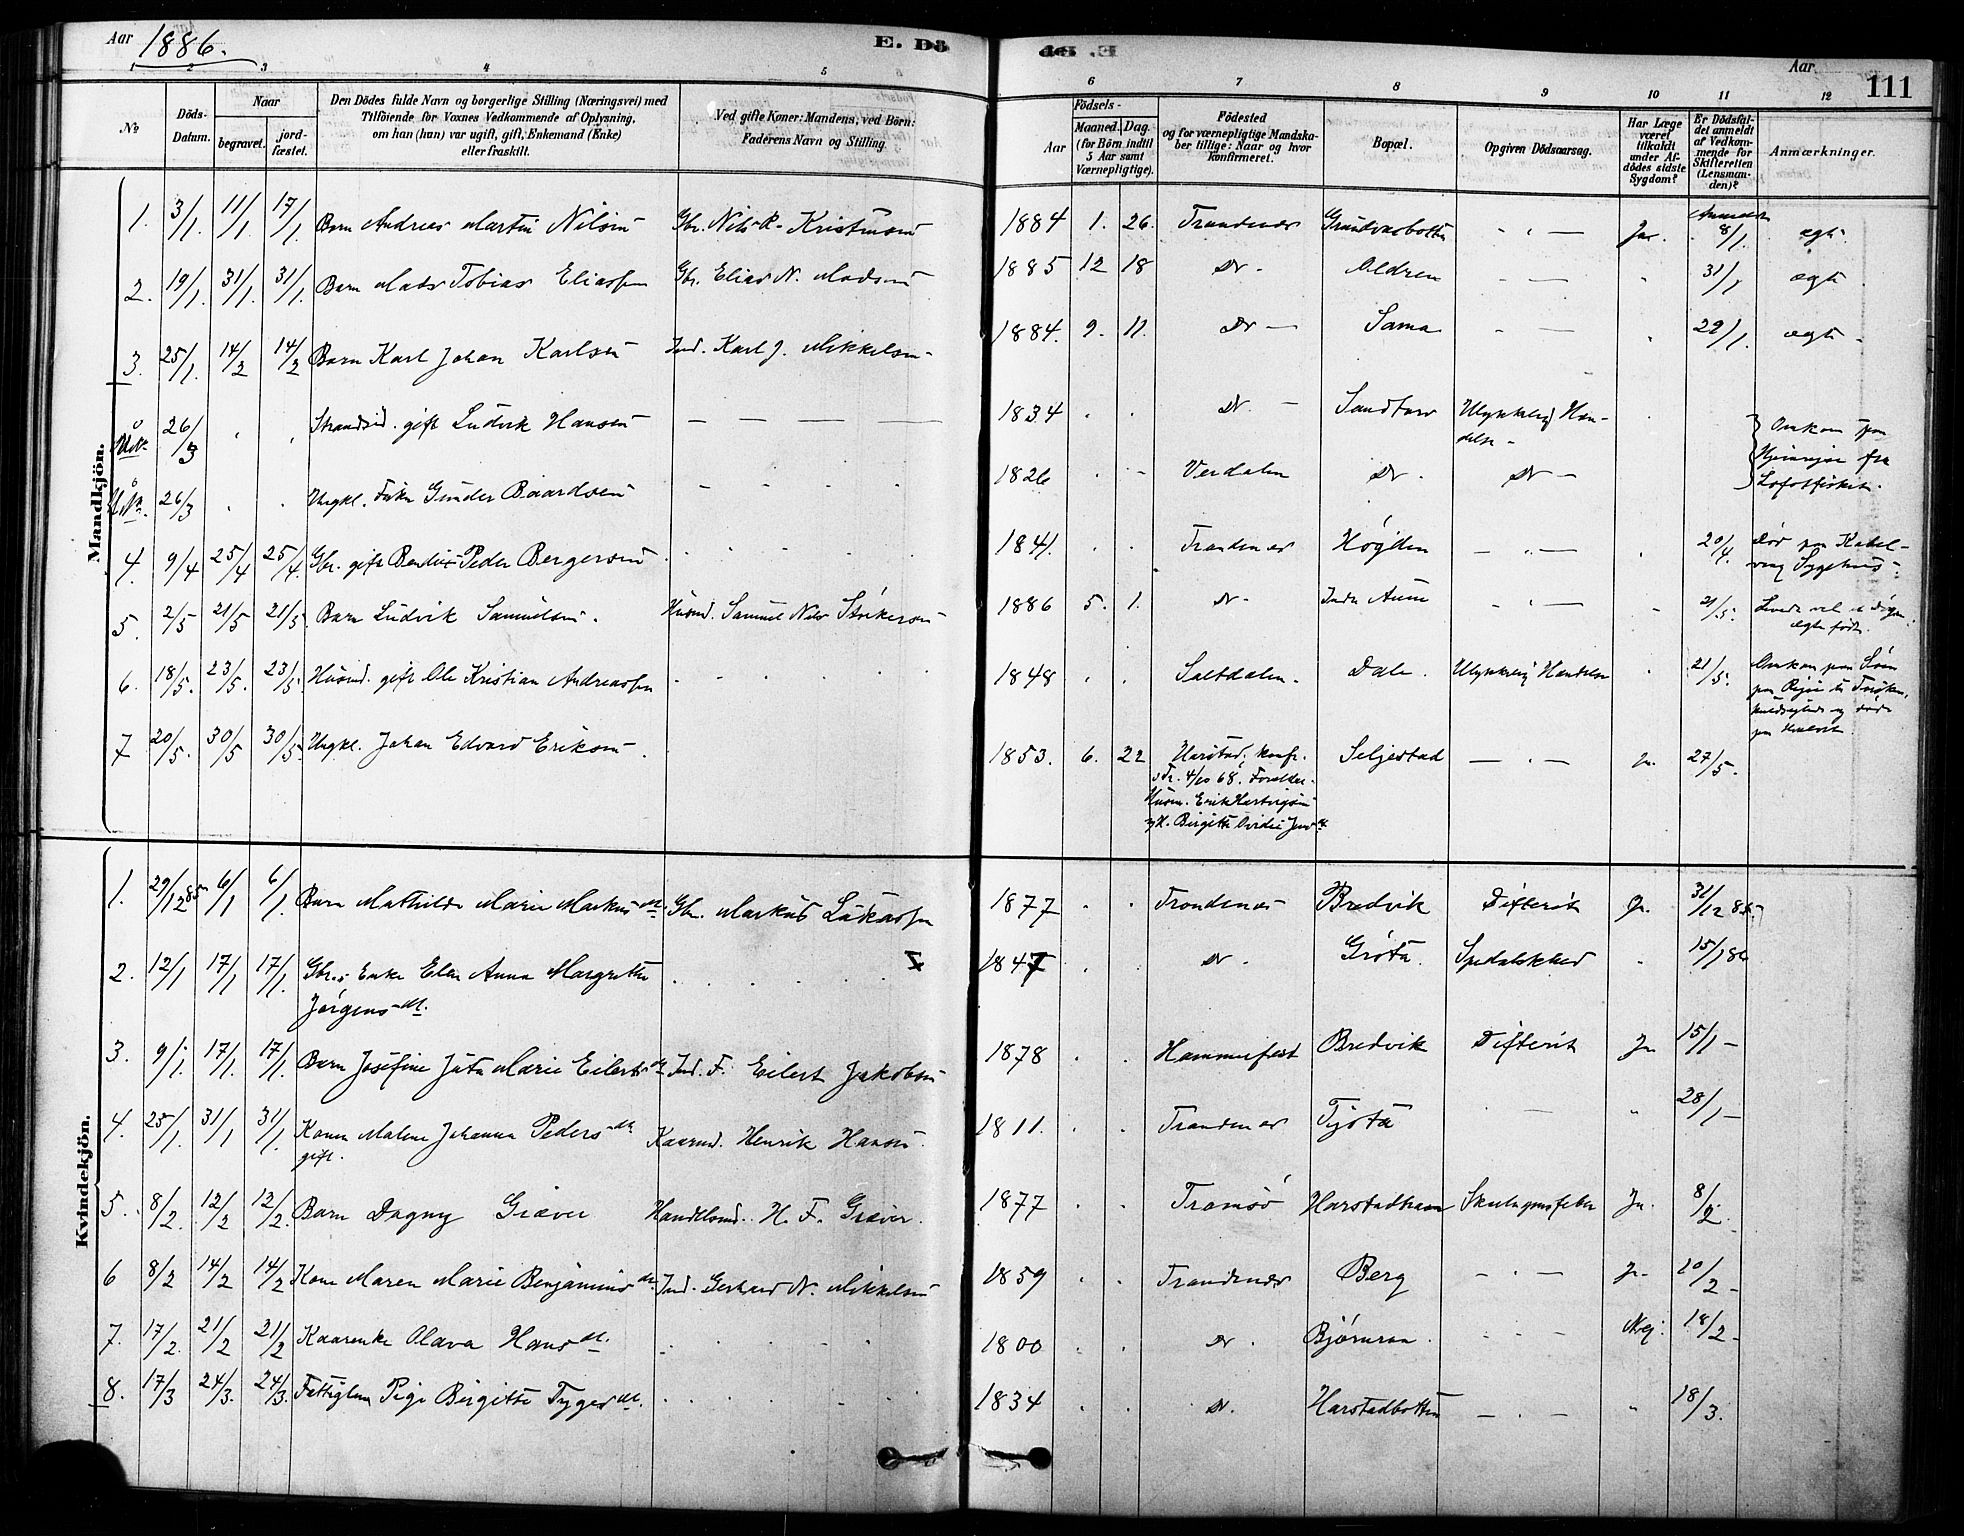 Aar 1886.
E. Dö
Aar
111
1 2 3 4 5 6 7 8 9 10 11 12
No
Döds-Datum.
Naar
begravet.
jord-fæstet.
Den Dödes fulde Navn og borgerlige Stilling (Næringsvei) med
Tilföiende for Voxnes Vedkommende af Oplysning,
om han (hun) var ugift, gift, Enkemand (Enke)
eller fraskilt.
Ved gifte Koner: Mandens, ved Börn:
Faderens Navn og Stilling.
Födsels-
Aar
Maaned. Dag.
(for Börn indtil
5 Aar samt
Værnepligtige).
Födested
og for værnepligtige Mandska-
ber tillige: Naar og hvor
konfirmeret.
Bopæl.
Opgiven Dödsaarsag.
Har Læge
været
tilkaldt
under Af-
dödes sidste
Sygdom?
Er Dödsfal-
det anmeldt
af Vedkom-
mende for
Skifteretten
(Lensman-
den)?
Anmærkninger.
Mandkjön.
1. 3/1. 11/1. 17/1. Barn Andreas Martin Nilsen Gbr. Nils R. Kristensen 1884 1. 26. Trondenæs - " - Ja. Anmeldt 8/1. ægte.
2. 19/1. 31/1. 31/1. Barn Mads Tobias Eliassen Gbr. Elias N. Madsen 1885 12 18 Do - Aldren - - 31/1 ægte
3. 25/1. 14/2 14/2 Barn Karl Johan Karlsen Ind. Karl J. Mikkelsen 1884. 9. 11. Do - Sama - - 29/1. ægte.
26/3 Strandsid. gift Ludvik Hansen - - - - 1834 Do. - Sandtorv Ulykkelig Hændelse - Omkom paa
Hjemrejse fra
Lofotfisket.
26/3 Ungkl. Gunder Baardsen 1826 Verdalen Do. Do -
4. 9/4 25/4 25/4. Gbr. gift Bendix Peder Bergersen 1841. Trondenæs Høgden - " - 20/4. Død paa Kabel-
vaag Sygehus.
5. 2/5 21/5 21/5. Barn Ludvik Samuelsen. Husmd. Samuel Nils 1886 5. 1. Do - Indr - " - 21/5. Levede vel et Døgn.
ægte født.
6. 18/5. 23/5. 23/5 Husmd. gift Ole Kristian Andreassen 1848 Saltdalen. Dale. Ulykkelig Hændelse 21/5. Omkom paa Søen
paa Rejse
7 20/5. 30/5 30/5. Ungkl. Johan Edvard Eriksen 1853. 6. 22 Harstad. konfr.
i Tr. 4/10 68. Forældre
Husm. Erik Hartvigsen
og H. Birgitte Seljestad - " - Ja. 27/5.
Kvindekjön.
1. 29/12 85 6/1 6/1. Barn Mathilde Marie Markusdt. Gbr. Markus Lukassen 1877 Trondenæs Bredvik Difterit Ja. 31/12 85
2. 12/1 17/1 17/1. Gbr.s Enke Elen Anna Margrethe
Jørgensdt. X 1847 Do. Grøta. Spedalskhed 15/1 86
3. 9/1. 17/1 17/1. Barn Josefine Juta Marie Eilertsdt. Ind. F. Eilert Jakobsen 1878 Hammerfest Bredvik Difterit Ja 15/1 -
4. 25/1. 31/1 31/1. Kone Malene Johanna Pedersdt.
gift. Kaarmd. Henrik Hansen. 1811. Trondenæs Tjøta - 28/1 -
5. 8/2. 12/2 12/2. Barn Dagny Græver Handelsmd. H. F. Græver. 1877 Tromsø Harstadhavn Skarlagensfeber Ja. 8/2.
6 8/2 14/2 14/2 Kone Maren Marie Benjaminsdt. Ind. Gerhard N. Mikkelsen 1859 Trondenæs Berg - " - Ja. 10/2 -
7. 17/2. 21/2 21/2 Kaarenke Olava Hansdt. 1800 Do. Nej. 18/2 -
8. 17/3 24/3. 24/3. Fattiglem Pige Birgitte Tygesdt. 1834 Do. Harstadbotten - " - 18/3.